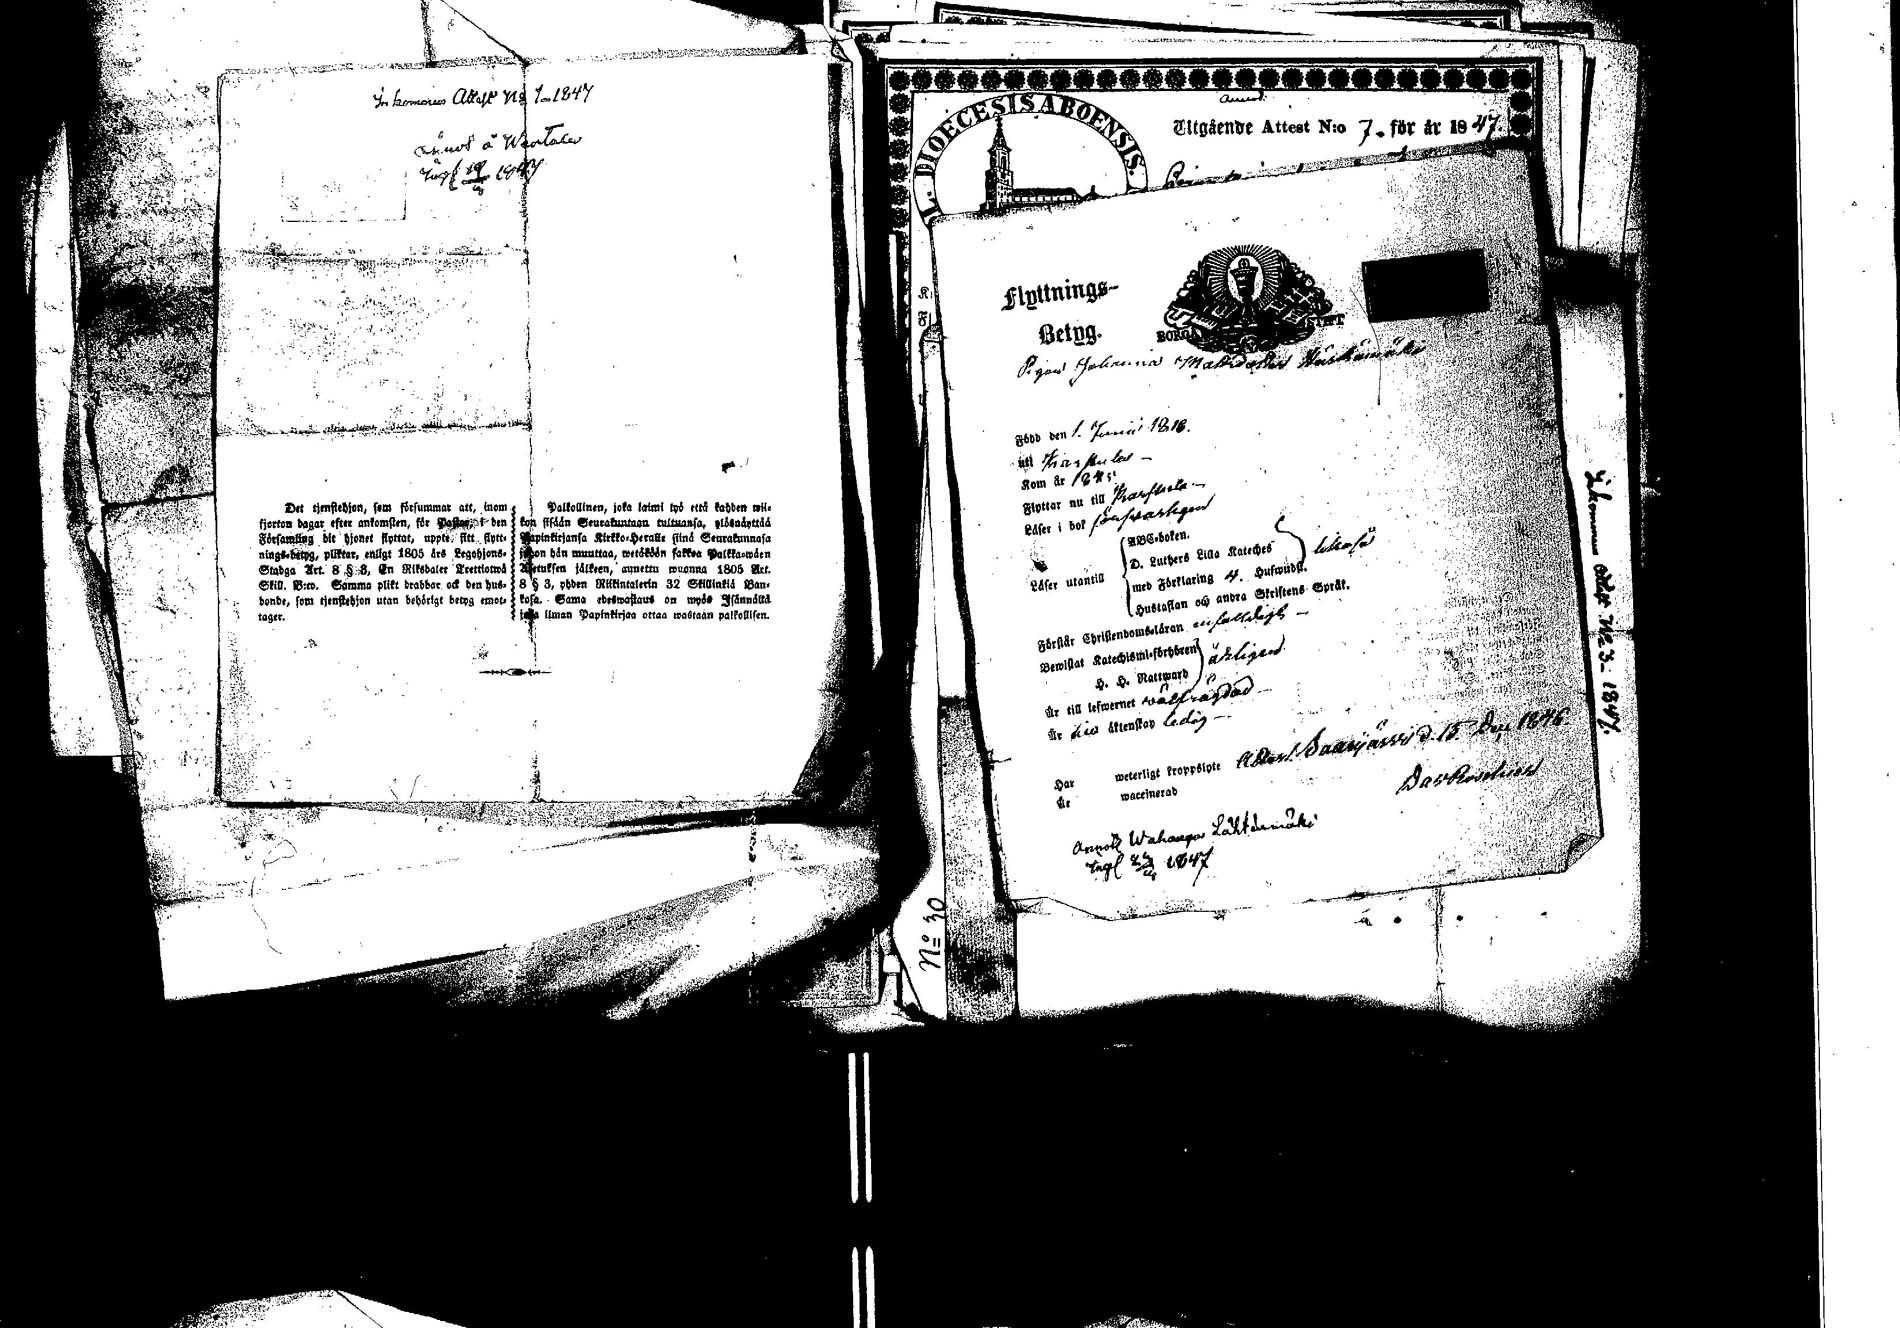 Inkommen Attest No 1-1847
1847
Det tjenstehjon, som försummar att, inom
fjorton dagar efter ankomsten, för Pastor i den
Församling dit hjonet flyttat, uppte sitt flytt-
nings-betyg, pliktar, enligt 1805 års Legohjons-
Stadga Art. 8 § 3, En Riksdaler Trettiotwå
Skill. B:co. Samma plikt drabbar ock den hus-
bonde, som tjenstehjon utan behörigt betyg emot-
tager.
Palkollinen, joka laimi lyö että kahden wii-
kon sisään Seurakuntaan tultuansa, ylösnäyttää
Papinkirjansa Kirkko-Herralle siinä Seurakunnasa
johon hän muuttaa, wetäköön sakkoa Palkka-wäen
Asetuksen jälkeen, annettu wuonna 1805 Art.
8 § 3, yhden Riikintalerin 32 Skillinkiä Ban-
kosa. Sama edeswastaus on myös Isännällä
joka ilman Papinkirjaa ottaa wastaan palkollisen.
L. DIOECESIS ABOENSIS.
Utgående Attest N:o 7. för år 1847.
Flyttnings-
Betyg.
BORGÅ STIFT
Pigan Johanna Mattsdotter
Född den 1. Junii 1818.
uti Karstula
Kom år 1845
Flyttar nu till Karstula
Läser i bok försvarligen
Läser utantill
ABC-boken.
D. Luthers Lilla Kateches
med Förklaring 4. Hufwudst.
Hustaflan och andra Skriftens Språk.
likaså
Förstår Christendomsläran enfaldigt
Bewistat Katechismi-förhören
H. H. Nattward
årligen
Är till lefwernet välfrägdad
Är till äktenskap ledig
Har weterligt kroppslyte
Är waccinerad
Attest. Saarijärvi d. 15 Dec 1846.
1847
Inkommen Attest No 3-1847.
No 30